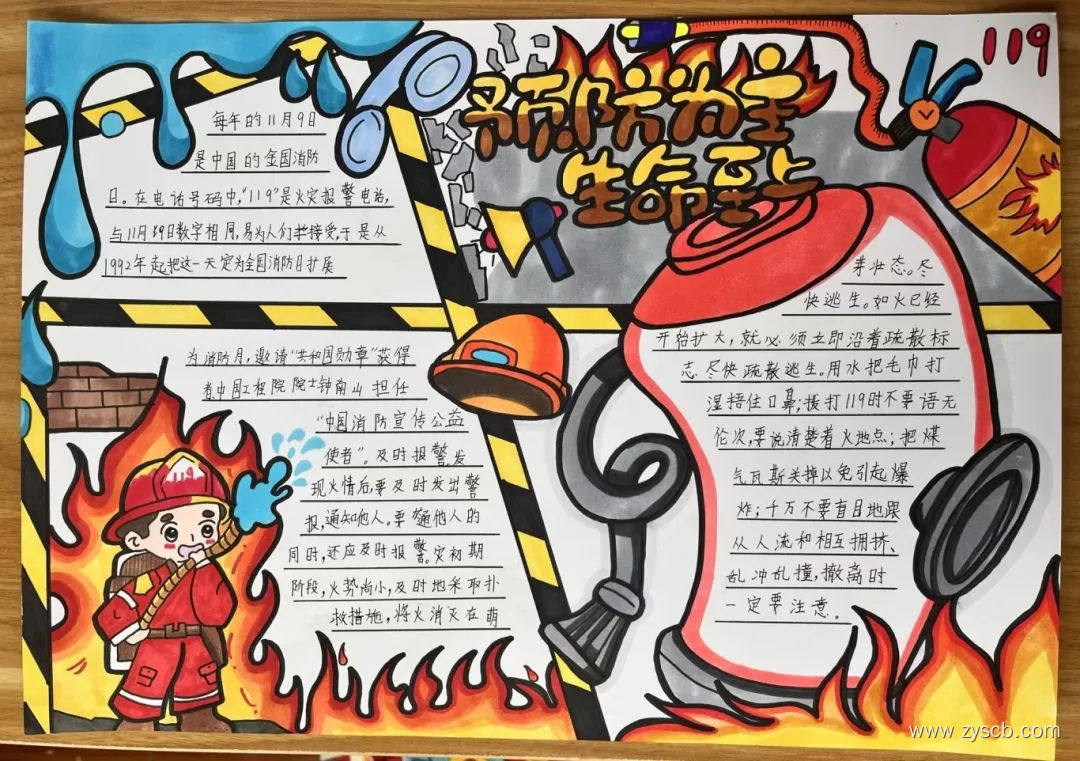 预防为主
生命至上
119
每年的11月9日
是中国的全国消防
日。在电话号码中,"119"是火灾报警电话,
与11月9日数字相同,易为人们接受,于是从
1992年起,把这一天定为全国消防日扩展
为消防月,邀请"共和国勋章"获得
者中国工程院院士钟南山担任
"中国消防宣传公益
使者"。及时报警。发
现火情后,要及时发出警
报,通知他人。要通他人的
同时,还应及时报警。灾初期
阶段,火势尚小,及时地采取扑
救措施,将火消灭在萌
芽状态。尽
快逃生。如火已经
开始扩大,就必须立即沿着疏散标
志尽快疏散逃生。用水把毛巾打
湿捂住口鼻;拨打119时不要语无
伦次,要说清楚着火地点;把煤
气瓦斯关掉以免引起爆
炸;千万不要盲目地跟
从人流和相互拥挤、
乱冲乱撞,撤离时
一定要注意。
119
www.zyscb.com